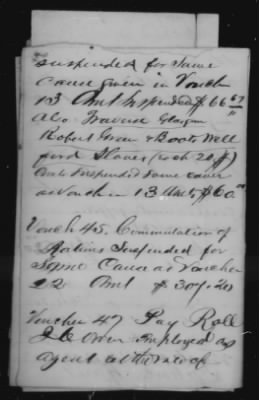 suspended for Same
cause given in Vouch
13 Amt Suspended $66 67
Also Traverse Glasgow
Robert Gran & Boots Well
ford Slover (each 20 $)
Amt Suspended same cause
as Vouchr 13 Amt, $60 00
Vouch 45. Commutation of
Rations Suspended for
Same Cause as Voucher
22 Amt $
Voucher 47 Pay Roll
Owen employed as
agent at the rate of